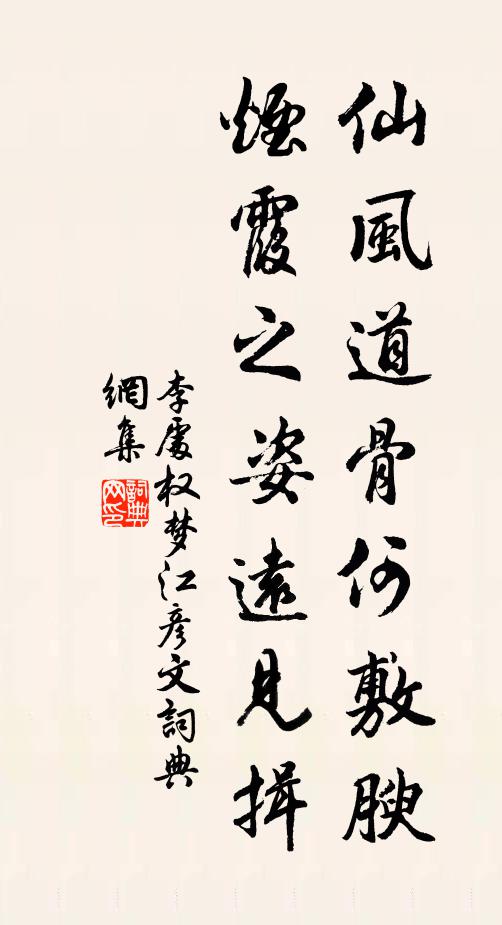 仙風道骨何敷腴
煙霞之姿遠見揖
李處权梦江彦文詞典
網集
詞典
网印